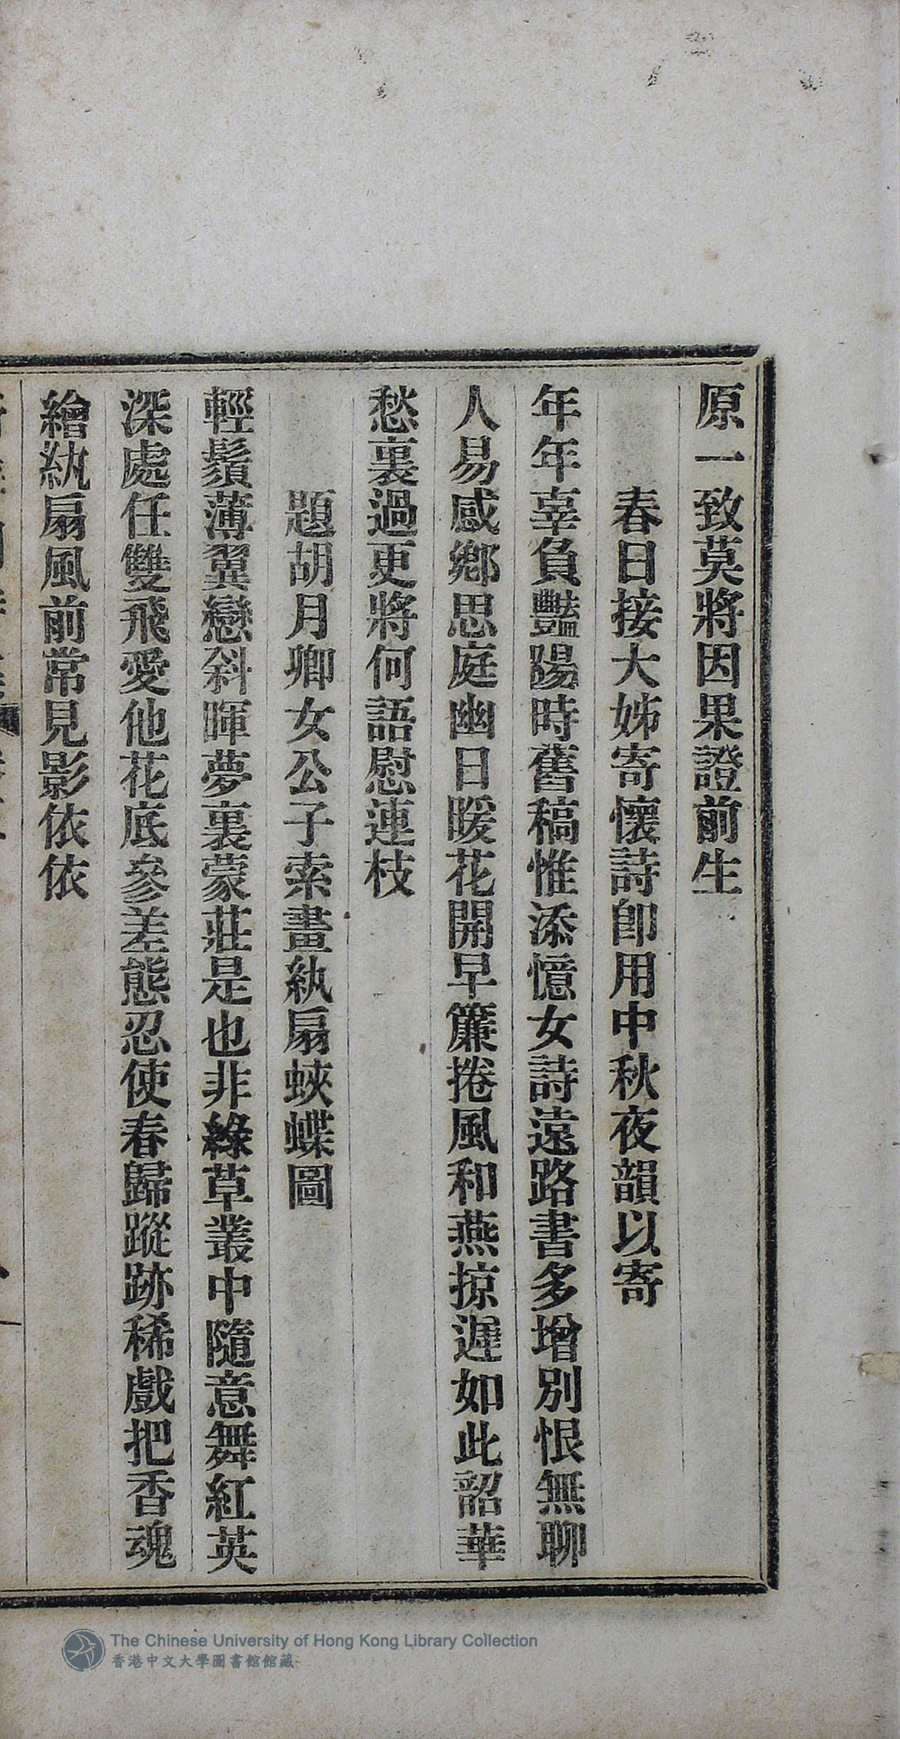 原一致莫將因果證前生
春日接大姊寄懷詩卽用中秋夜韻以寄
年年辜負豔陽時舊稿惟添憶女詩遠路書多增別恨無聊
人易感鄉思庭幽日暖花開早簾捲風和燕掠遲如此韶華
愁裏過更將何語慰連枝
題胡月卿女公子索畫紈扇蛺蝶圖
輕鬚薄翼戀斜暉夢裏蒙莊是也非綠草叢中隨意舞紅英
深處任雙飛愛他花底參差態忍使春歸蹤跡稀戲把香魂
繪紈扇風前常見影依依
The Chinese University of Hong Kong Library Collection
香港中文大學圖書館館藏